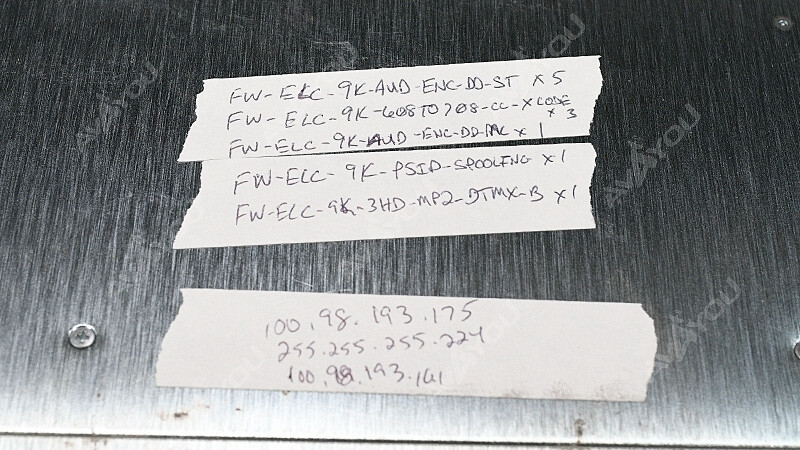 FW-ELC-9K-AUD-ENC-DD-ST x 5
FW-ELC-9K-608TO708-CC-XCODE x 3
FW-ELC-9K-AUD-ENC-DD-PAC x 1
FW-ELC-9K-PSIP-SPOOLING x 1
FW-ELC-9K-3HD-MP2-DTMX-B x 1
100.98.193.175
255.255.255.224
100.98.193.161
AVAYOU
AVAYOU
AVAYOU
AVAYOU
AVAYOU